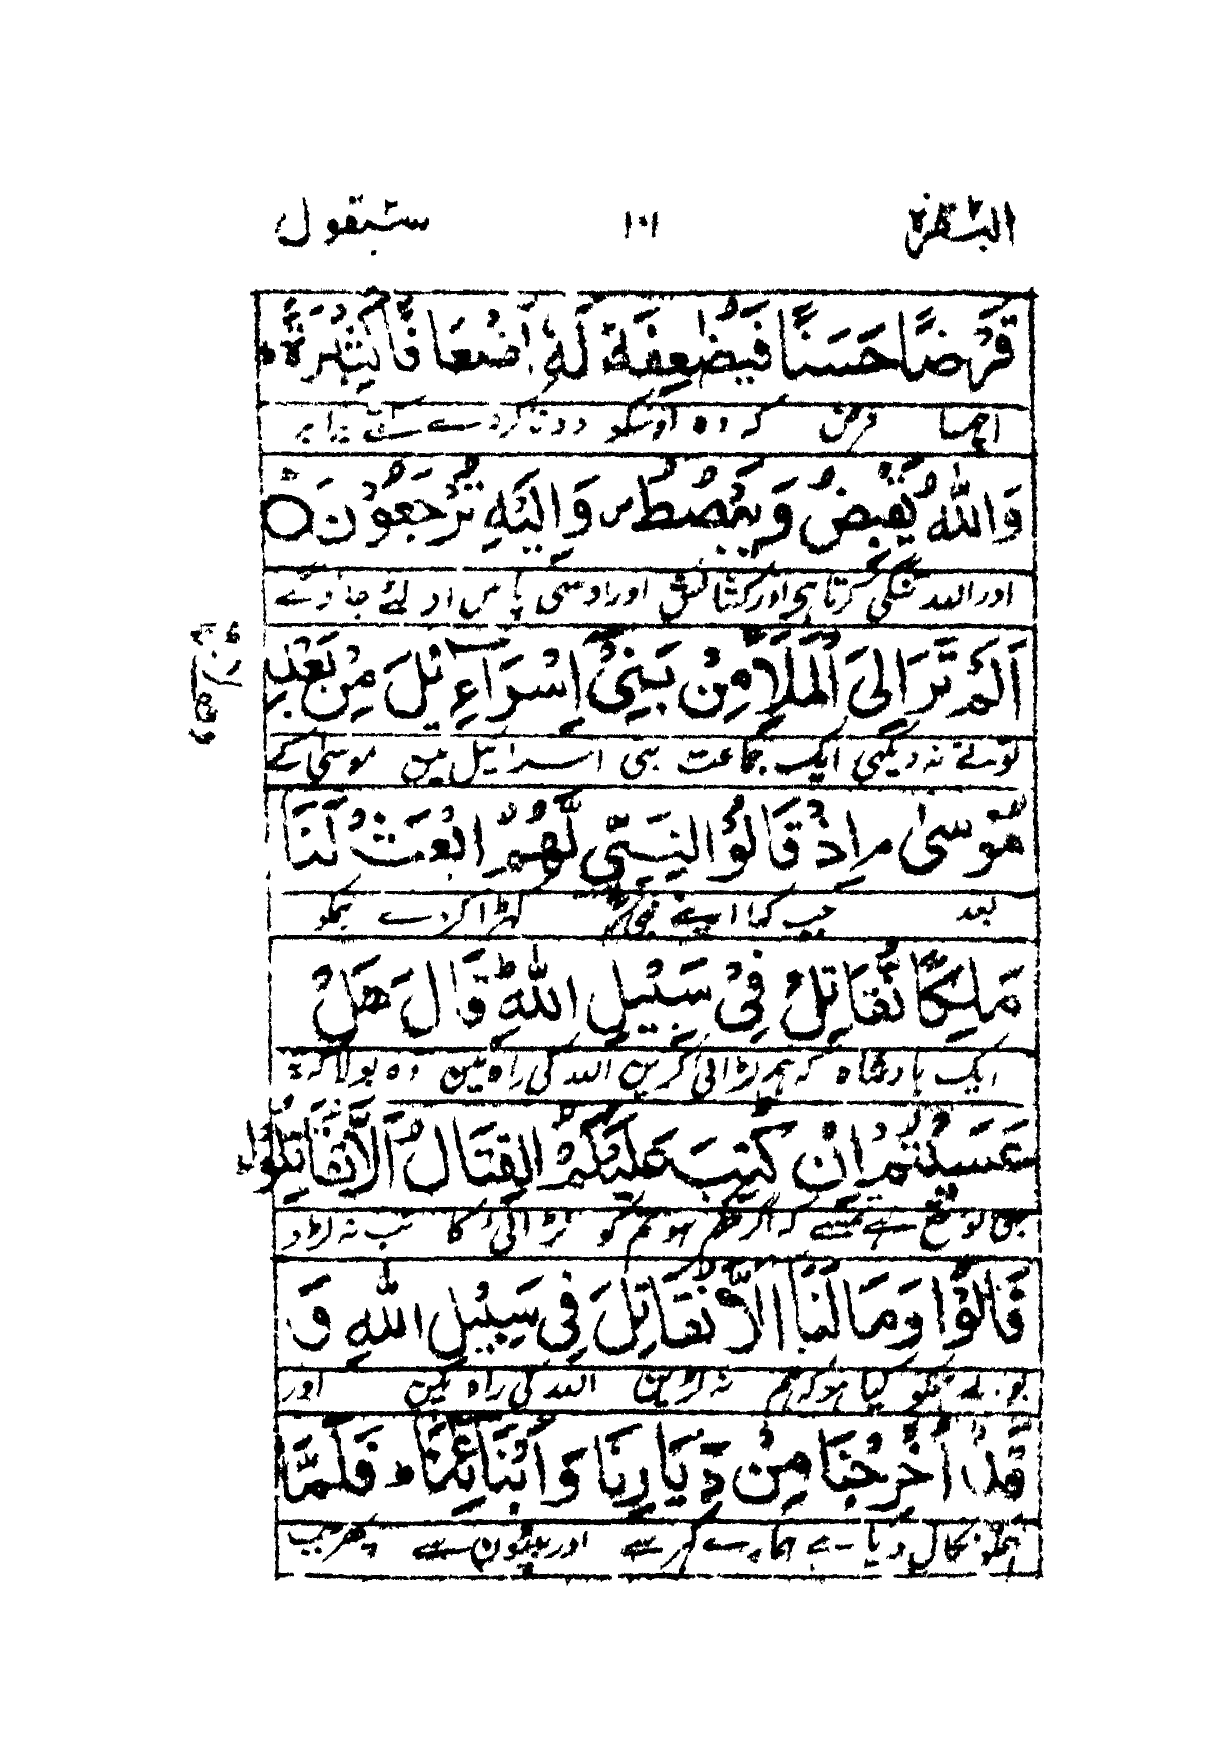 البقرة ١٠١ سیقول
قَرْضًا حَسَنًا فَيُضٰعِفَهٗ لَهٗٓ اَضْعَافًا كَثِيْرَةً ط
اچھا قرض کہ وہ اوسکو دونا کردے کتنے برابر
وَاللّٰهُ يَقْبِضُ وَيَبْصُۜطُ وَاِلَيْهِ تُرْجَعُوْنَ
اور اللہ تنگی کرتا ہی اور کشائش اور اوسی پاس اولٹے جاوگے
اَلَمْ تَرَ اِلَى الْمَلَاِ مِنْۢ بَنِيْٓ اِسْرَآءِيْلَ مِنْۢ بَعْدِ
تونے نہ دیکھی ایک جماعت بنی اسرائیل میں موسیٰ کے
مُوْسٰى اِذْ قَالُوْا لِنَبِيٍّ لَّهُمُ ابْعَثْ لَنَا
بعد جب کہا اپنے نبی کو کھڑا کردے ہمکو
مَلِكًا نُّقَاتِلْ فِيْ سَبِيْلِ اللّٰهِ ط قَالَ هَلْ
ایک بادشاہ کہ ہم لڑائی کریں اللہ کی راہ میں وہ بولا کہ
عَسَيْتُمْ اِنْ كُتِبَ عَلَيْكُمُ الْقِتَالُ اَلَّا تُقَاتِلُوْا
بھی توقع ہے تمسے کہ اگر حکم ہو تمکو لڑائی کا تب نہ لڑو
قَالُوْا وَمَا لَنَآ اَلَّا نُقَاتِلَ فِيْ سَبِيْلِ اللّٰهِ وَ
بولے ہمکو کیا ہو کہ ہم نہ لڑیں اللہ کی راہ میں اور
قَدْ اُخْرِجْنَا مِنْ دِيَارِنَا وَاَبْنَآئِنَا ط فَلَمَّا
ہمکو نکال دیا ہے ہمارے گھر سے اور بیٹوں سے پھر جب